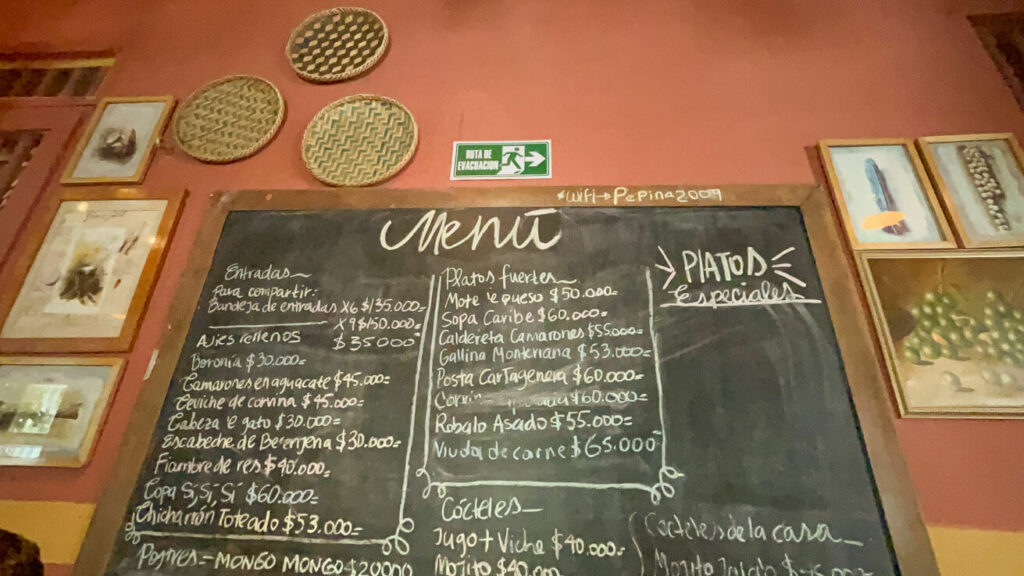 RUTA DE
EVACUACIÓN
*Wifi→Pepina2009
Menú
Entradas
Para compartir:
Bandeja de entradas X6 $135.000=
X9 $150.000=
Ajies rellenos $35000
Boronía $30.000=
Camarones en aguacate $45.000=
Ceviche de corvina $45.000=
Cabeza e gato $30.000=
Escabeche de Berenjena $30.000=
Fiambre de res $40.000=
Copa Sí, Sí, Sí $60.000=
Chicharrón Toteado $53.000=
Postres=MONGO MONGO $20000
Platos fuertes
Mote e queso $50.000=
Sopa Caribe $60.000=
Caldereta Camarones $55.000=
Gallina Monteriana $53.000=
Posta Cartagenera $60.000=
$60.000=
Robalo Asado $55.000=
Viuda de carne $65.000=
Cócteles
Jugo + Viche $40.000=
MOJITO $40.000=
PLATOS
Especiales
Cócteles de la casa
Mojito